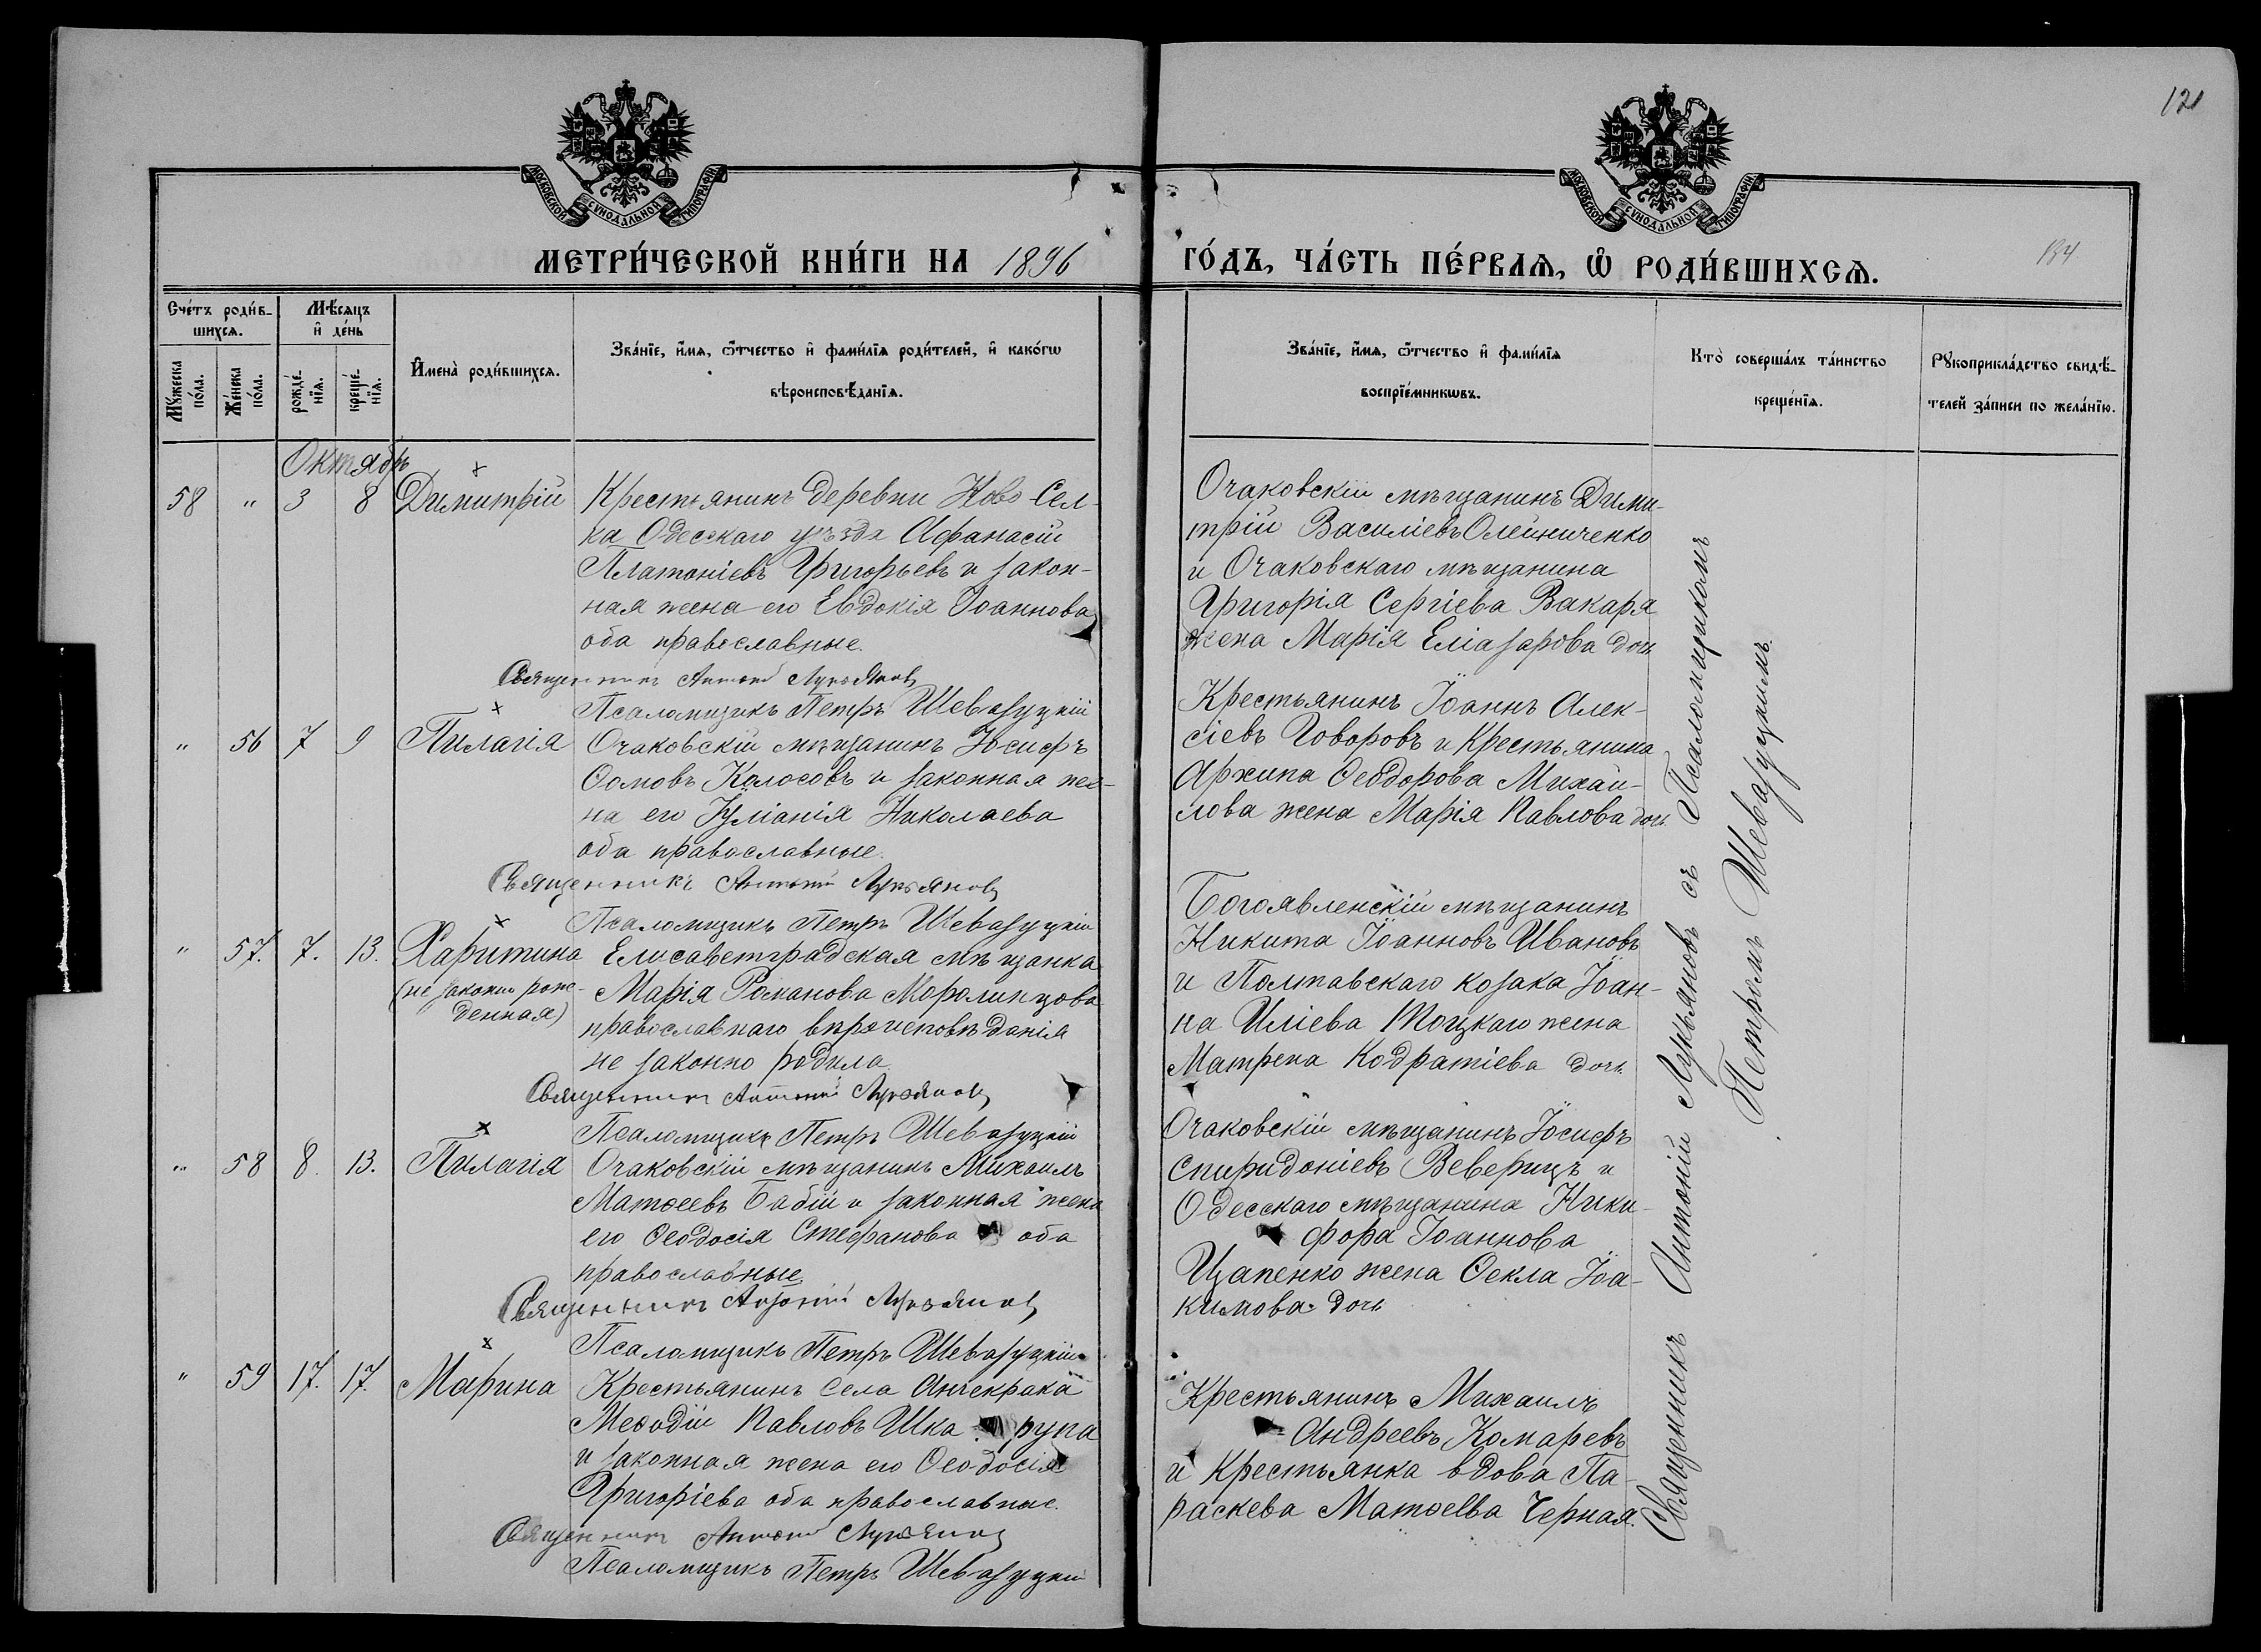 121
МОСКОВСКОЙ СѴНОДАЛЬНОЙ ТИПОГРАФІИ
МОСКОВСКОЙ СѴНОДАЛЬНОЙ ТИПОГРАФІИ
МЕТРИ́ЧЕСКОЙ КНИ́ГИ НА 1896 ГО́ДЪ, ЧА́СТЬ ПЕ́РВАѦ, Ѽ РОДИ́ВШИХСѦ.
134
Сче́тъ роди́в-
шихсѧ.
Мѣ́сѧцъ
и҆ де́нь
Мꙋ́жеска
по́ла.
Же́нска
по́ла.
рожде́-
нїѧ.
креще́-
нїѧ.
И҆мена̀ роди́вшихсѧ.
Зва́нїе, и҆́мѧ, ѻ҆́тчество и҆ фами́лїѧ роди́телей, и҆ како́гѡ
вѣроисповѣ́данїѧ.
Зва́нїе, и҆́мѧ, ѻ҆́тчество и҆ фами́лїѧ
воспрїе́мникѡвъ.
Кто̀ соверша́лъ та́инство
креще́нїѧ.
Рꙋкоприкла́дство свидѣ́-
телей за́писи по жела́нїю.
Октябрь
58 " 3 8 Димитрій
Крестьянинъ деревни Ново-Сел-
ка Одесскаго уѣзда Афанасій
Платоніевъ Григорьевъ и закон-
ная жена его Евдокія Іоаннова
оба православные.
Священникъ Антоній Лукьяновъ
Псаломщикъ Петръ Шевазуцкій
Очаковскій мѣщанинъ Дими-
трій Василіевъ Олейниченко
и Очаковскаго мѣщанина
Григорія Сергіева Вакаря
жена Марія Еліазарова дочь
" 56 7 9 Пилагія
Очаковскій мѣщанинъ Іосифъ
Ѳомовъ Колосовъ и законная же-
на его Іуліанія Николаева
оба православные.
Священникъ Антоній Лукьяновъ
Псаломщикъ Петръ Шевазуцкій
Крестьянинъ Іоаннъ Алек-
сіевъ Говоровъ и Крестьянина
Архипа Ѳеодорова Михай-
лова жена Марія Павлова дочь.
" 57. 7. 13. Харитина
(не законно рож-
денная)
Елисаветградская мѣщанка
Марія Романова Моролинцова
православнаго вѣроисповѣданія
не законно родила.
Священникъ Антоній Лукьяновъ
Псаломщикъ Петръ Шевазуцкій
Богоявленскій мѣщанинъ
Никита Іоанновъ Ивановъ
и Полтавскаго козака Іоан-
на Иліева Тоцкаго жена
Матрена Кодратіева дочь.
" 58 8. 13. Пилагія
Очаковскій мѣщанинъ Михаилъ
Матѳеевъ Бабій и законная жена
его Ѳеодосія Стефанова оба
православные.
Священникъ Антоній Лукьяновъ
Псаломщикъ Петръ Шевазуцкій
Очаковскій мѣщанинъ Іосифъ
Спиридоніевъ Веверицъ и
Одесскаго мѣщанина Ники-
фора Іоаннова
Цапенко жена Ѳекла Іоа-
кимова дочь
" 59 17. 17. Марина
Крестьянинъ села Анчекрака
Меѳодій Павловъ Шка рупа
и законная жена его Ѳеодосія
Григоріева оба православные.
Священникъ Антоній Лукьяновъ
Псаломщикъ Петръ Шевазуцкій
Крестьянинъ Михаилъ
Андреевъ Комаревъ
и Крестьянка вдова Па-
раскева Матѳеева Черная.
Священникъ Антоній Лукьяновъ съ Псаломщикомъ
Петромъ Шевазуцкимъ.